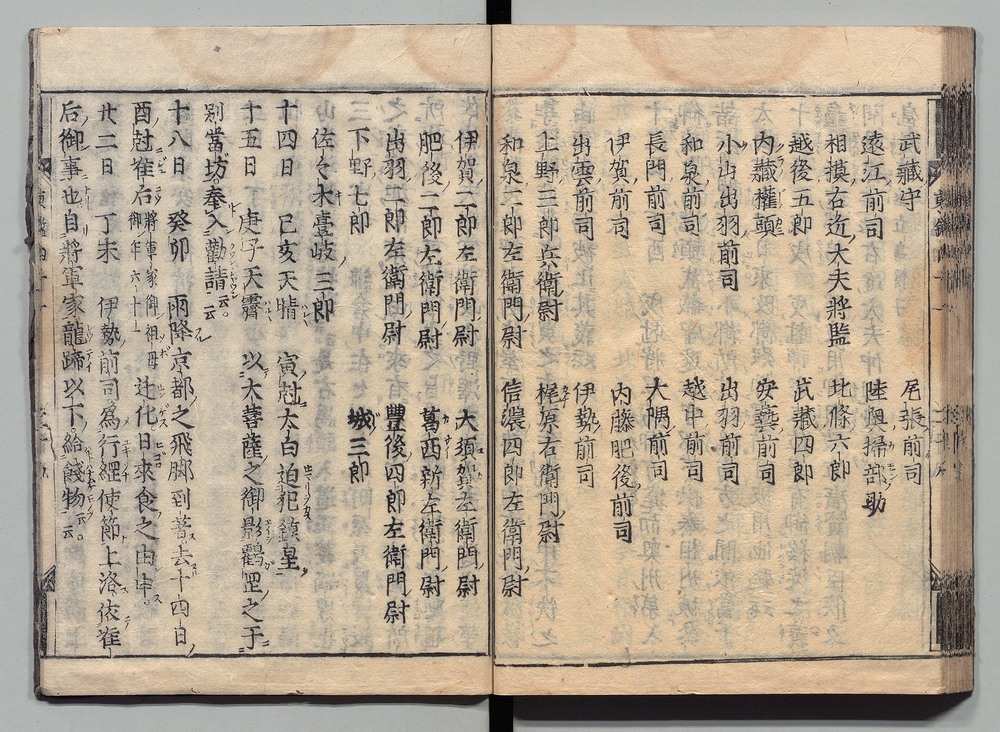 武藏守　尾張前司
遠江前司　陸奥掃部助
相摸右近大夫將監　北條六郎
越後五郎　武藏四郎
内藏權頭　安藝前司
小山出羽前司　出羽前司
和泉前司　越中前司
長門前司　大隅前司
伊賀前司　内藤肥後前司
出雲前司　伊勢前司
上野三郎兵衛尉　梶原右衛門尉
和泉二郎左衛門尉　信濃四郎左衛門尉
伊賀二郎左衛門尉　大須賀左衛門尉
肥後二郎左衛門尉　葛西新左衛門尉
出羽三郎左衛門尉　豐後四郎左衛門尉
佐々木壹岐三郎　城三郎
下野七郎
十四日　己亥天晴　寅尅太白迫犯鎮星
十五日　庚子天霽　以大菩薩之御影鸖罡之于
別當坊奉入勸請云云
十八日　癸卯　雨降京都之飛脚到著去十四日
酉尅准后將軍家御祖母御年六十一辻化日來食之由申
廿二日　丁未　伊勢前司爲行經使節上洛依准
后御事也自將軍家龍蹄以下給餞物云云